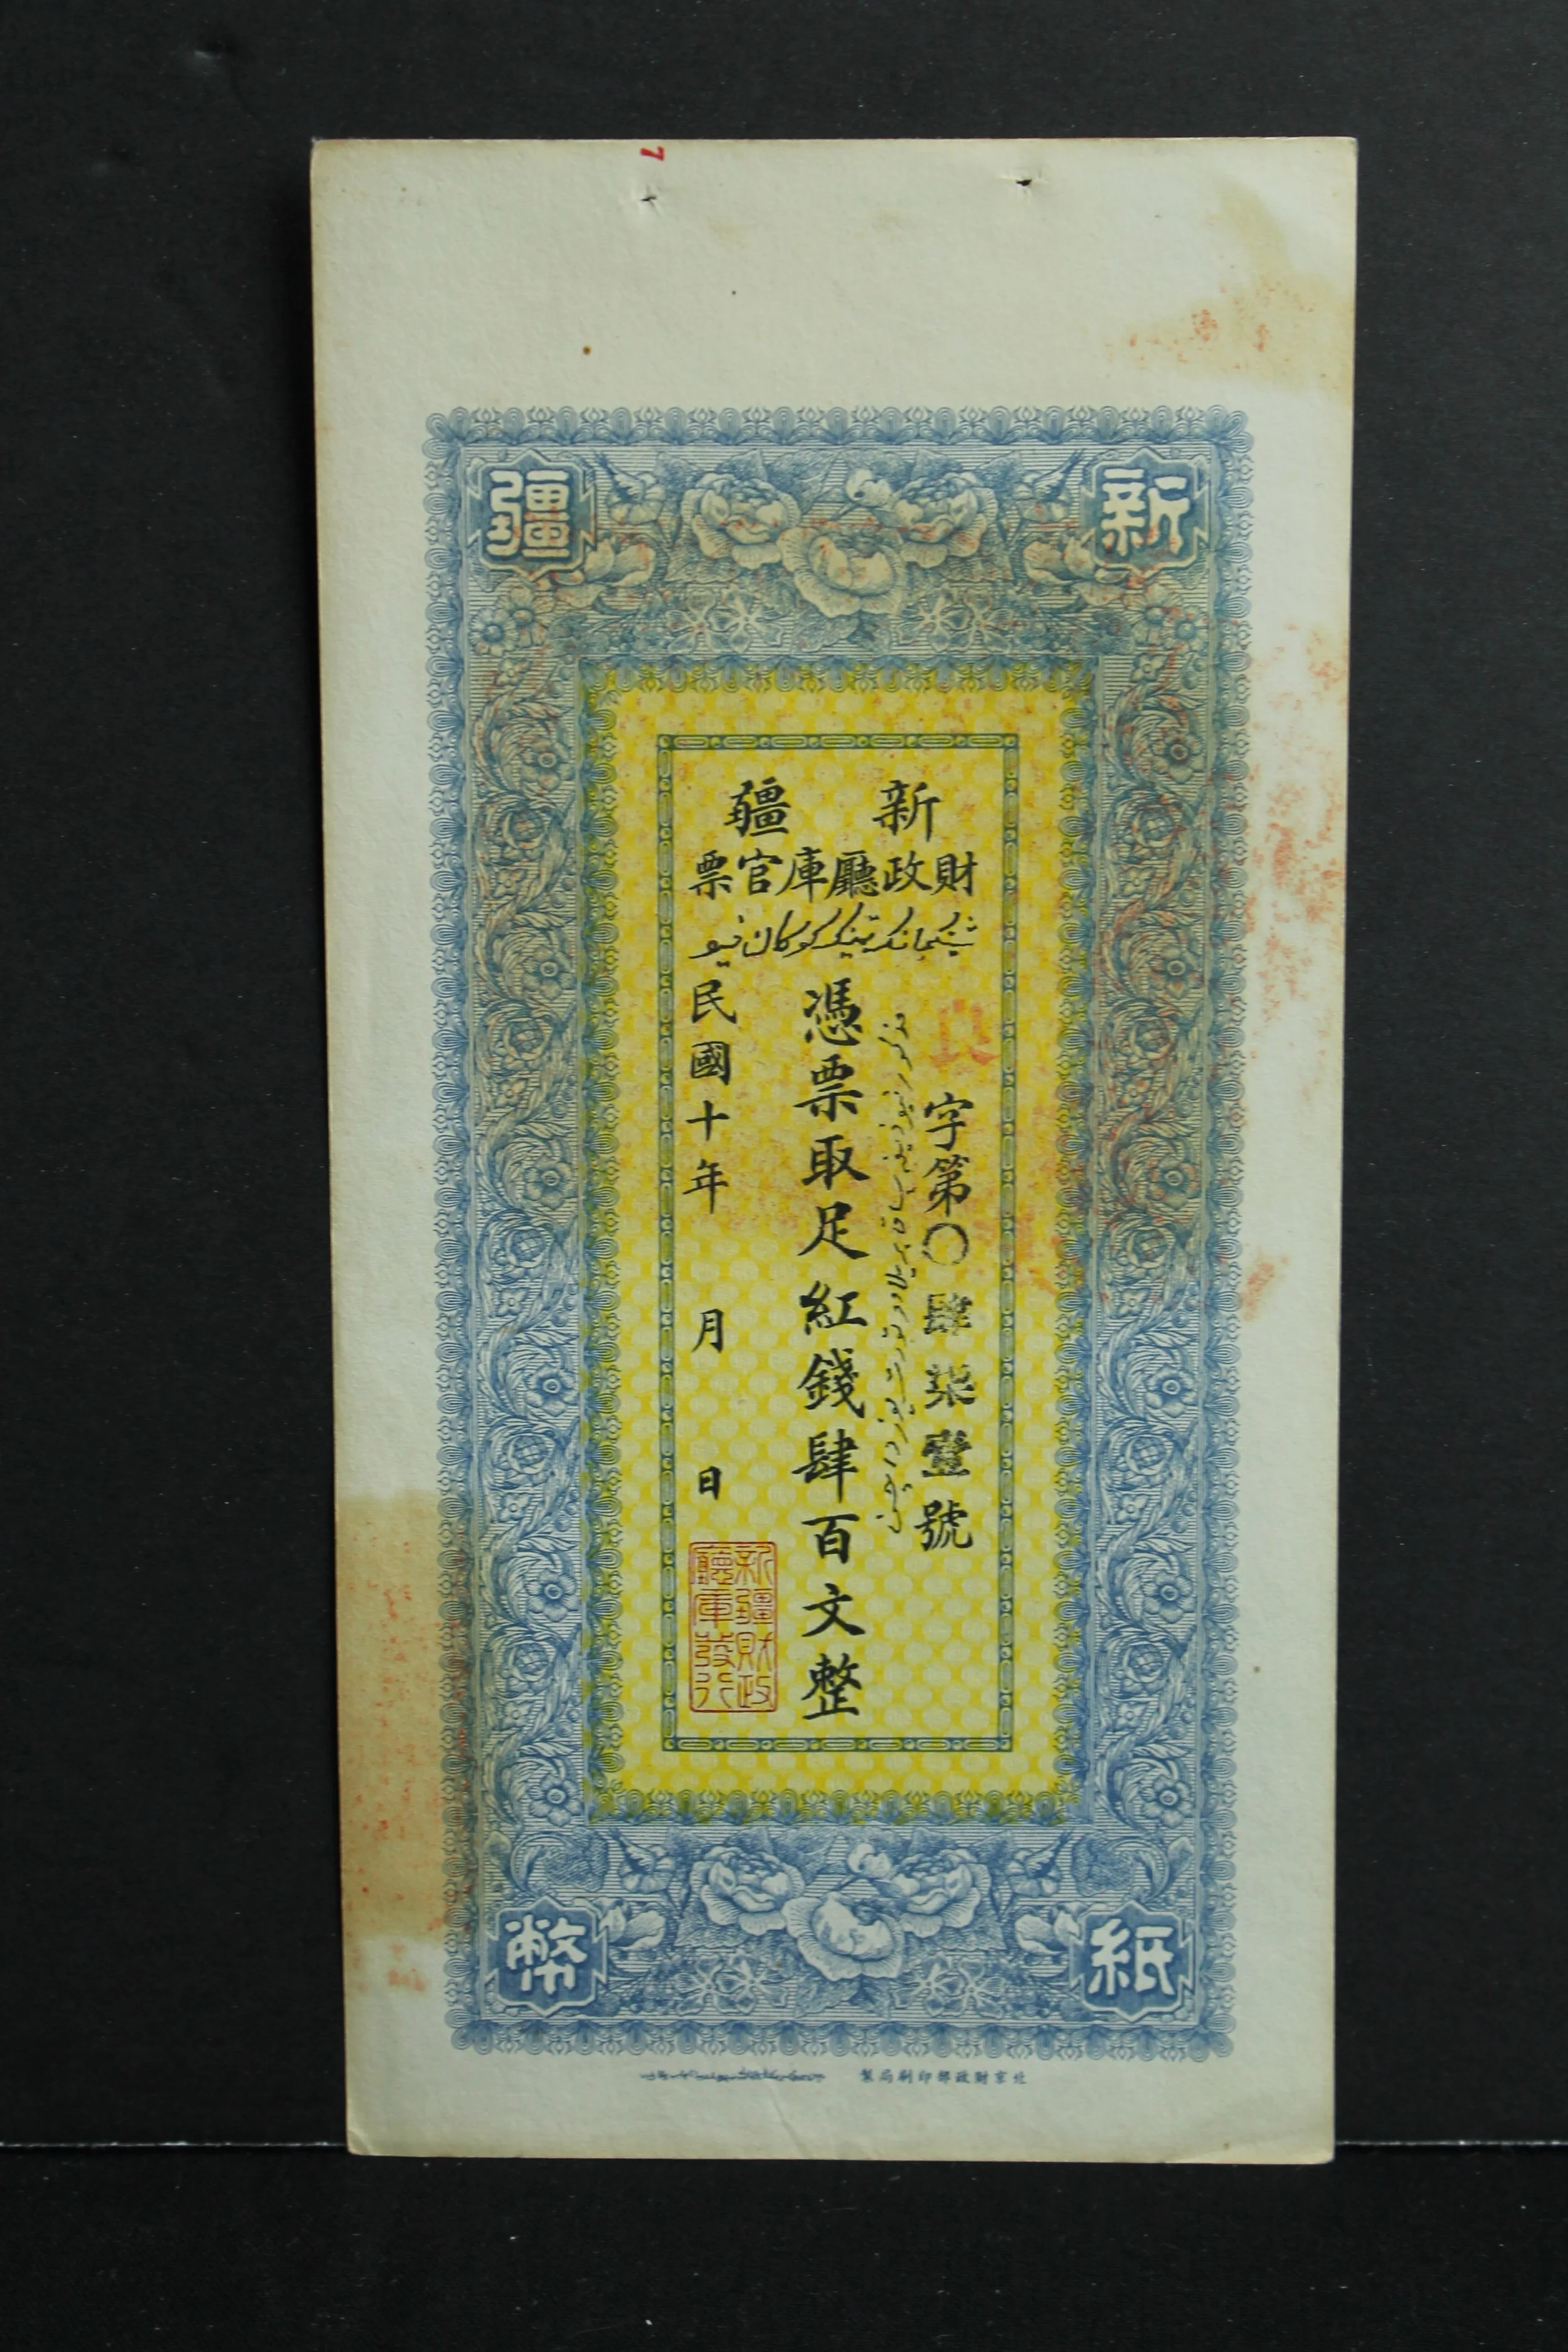 7
新疆
新疆
財政廳庫官票
字第〇肆柒壹號
憑票取足紅錢肆百文整
民國十年 月 日
新疆財政
廳庫發行
紙幣
北京財政部印刷局製